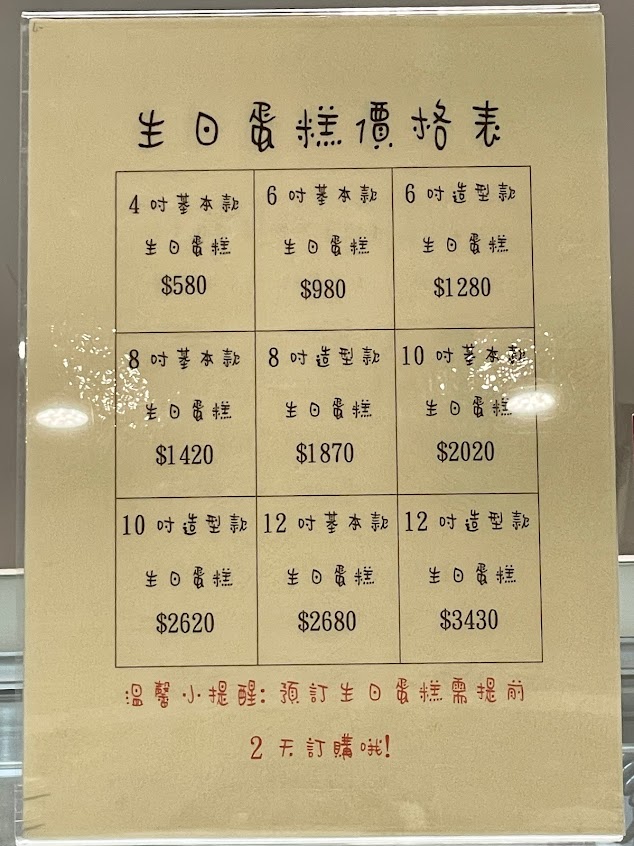 生日蛋糕價格表
4吋基本款
生日蛋糕
$580
6吋基本款
生日蛋糕
$980
6吋造型款
生日蛋糕
$1280
8吋基本款
生日蛋糕
$1420
8吋造型款
生日蛋糕
$1870
10吋基本款
生日蛋糕
$2020
10吋造型款
生日蛋糕
$2620
12吋基本款
生日蛋糕
$2680
12吋造型款
生日蛋糕
$3430
溫馨小提醒:預訂生日蛋糕需提前
2天訂購哦!